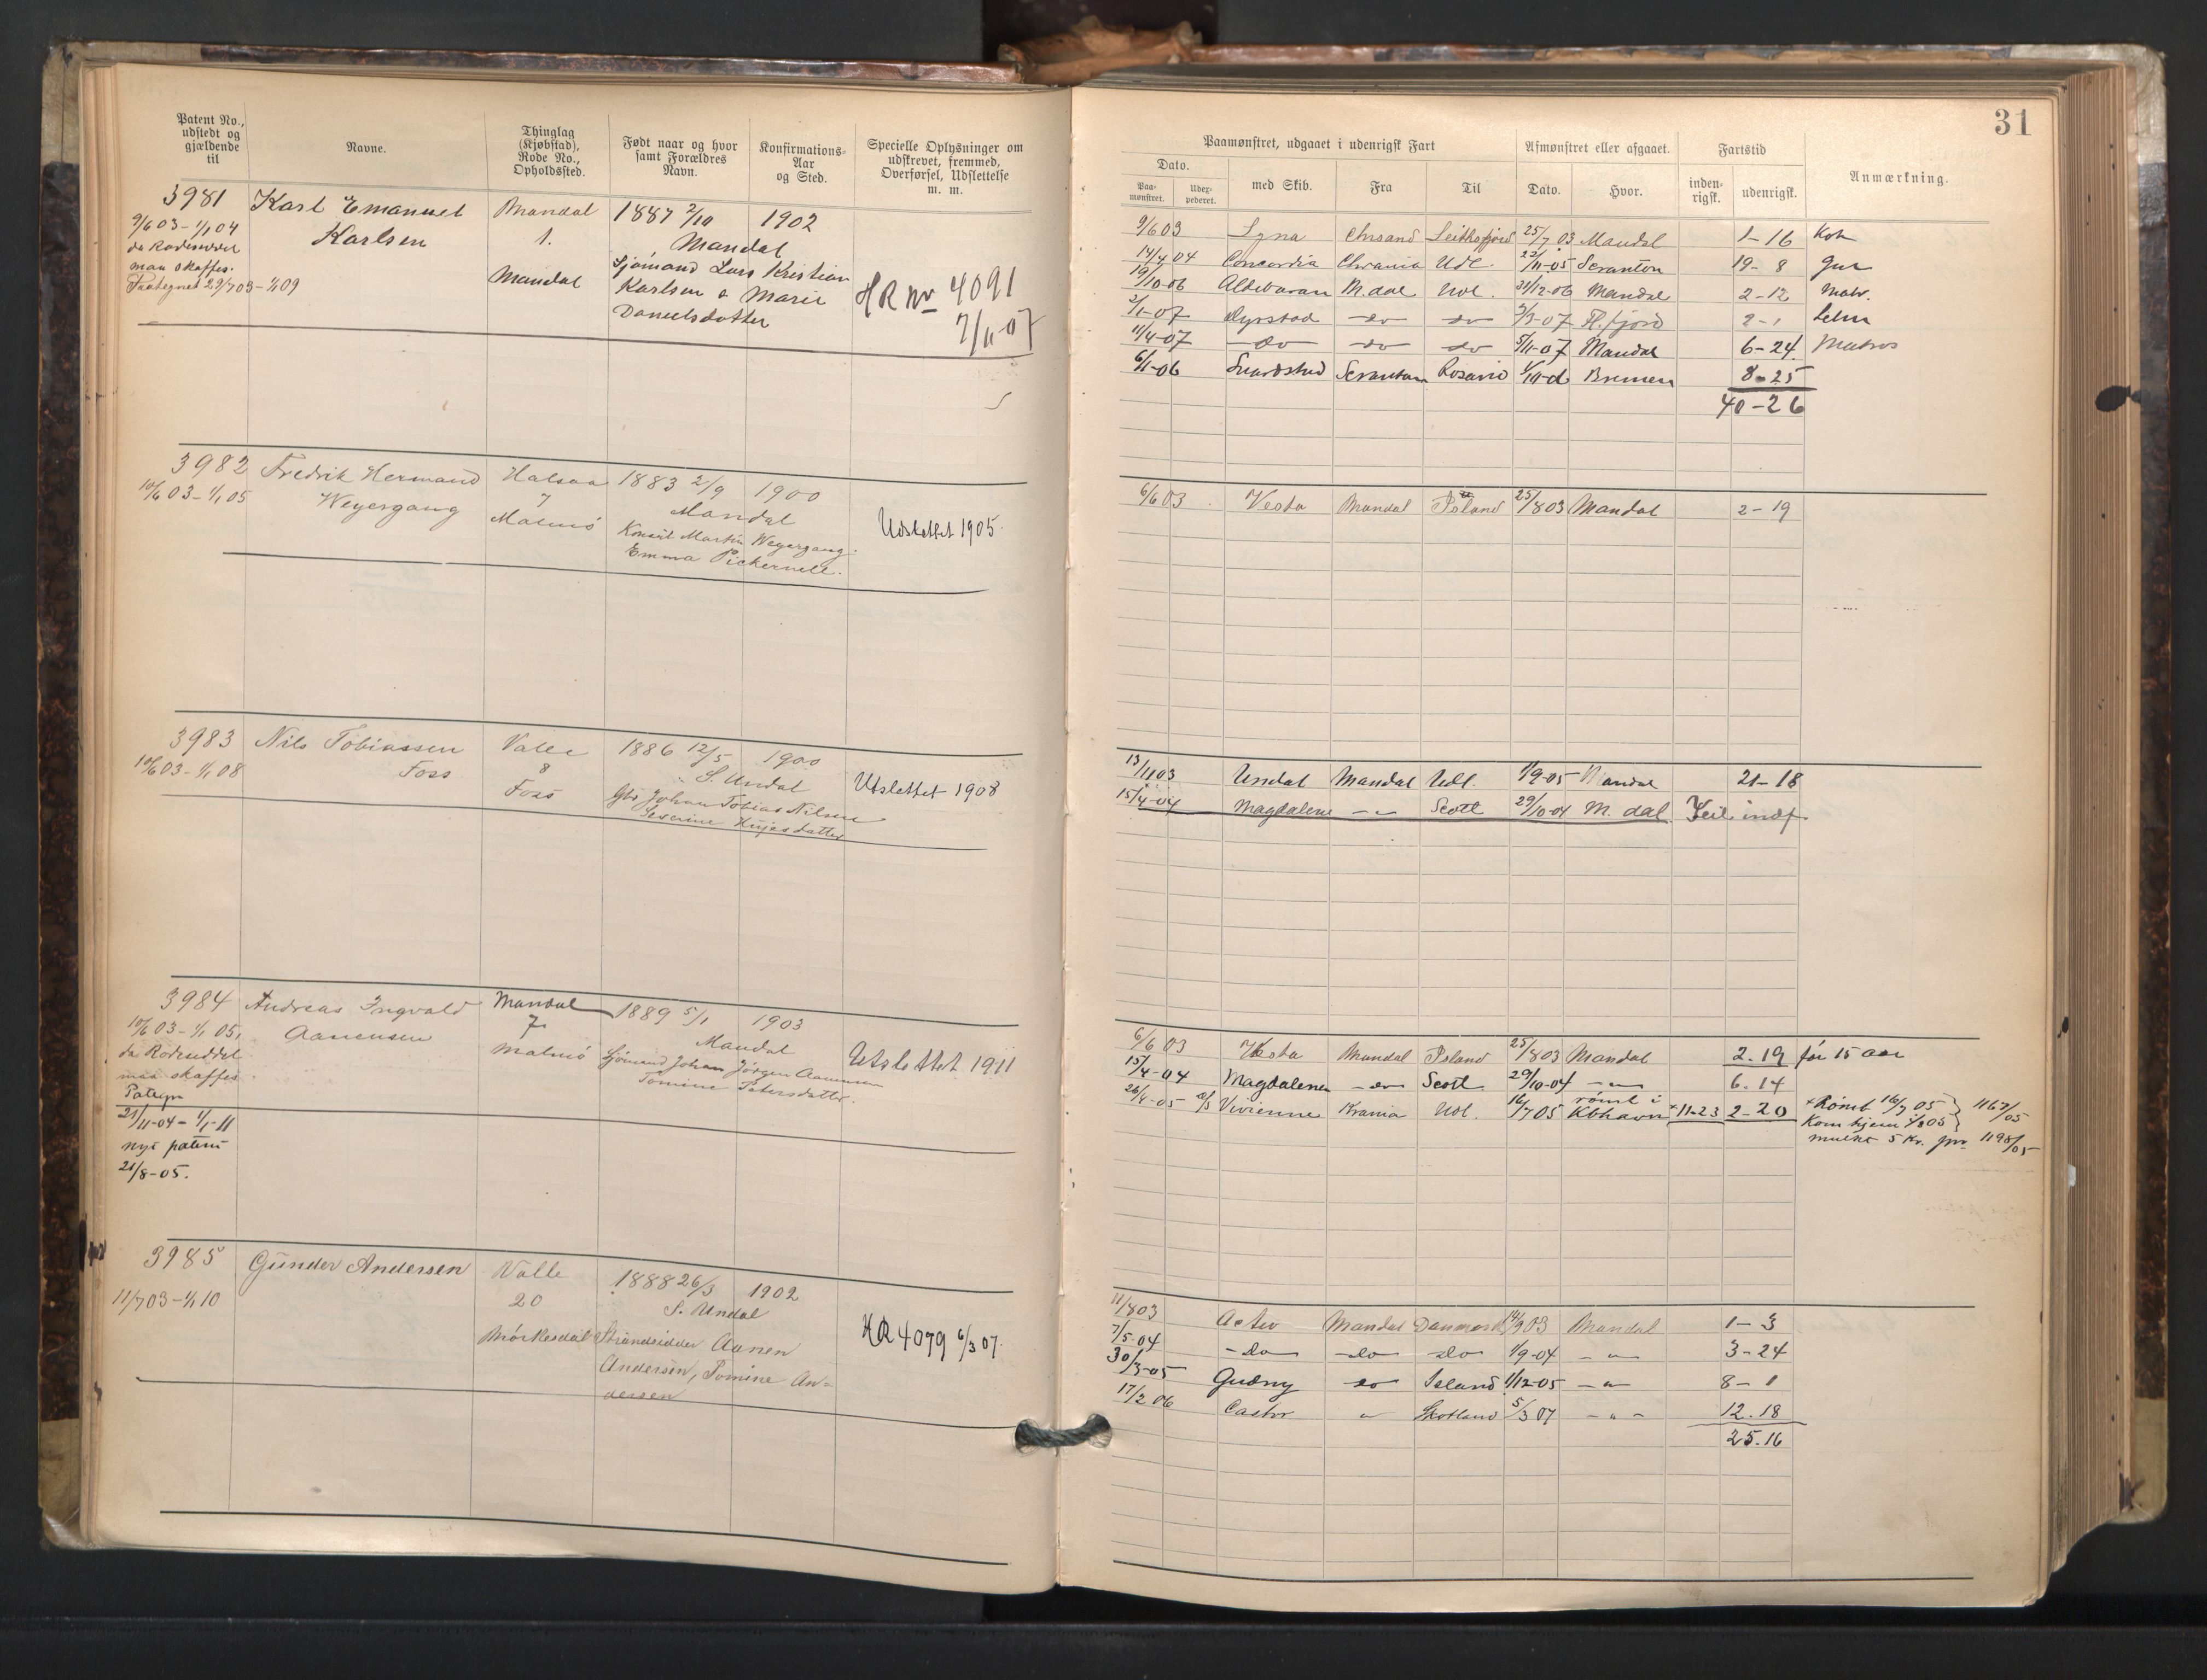 31
Patent No., udstedt og gjældende til
Navne.
Thinglag (Kjøbstad), Rode No., Opholdssted.
Født naar og hvor samt Forældres Navn.
Konfirmations-Aar og Sted.
Specielle Oplysninger om udskrevet, fremmed, Overførsel, Udslettelse m. m.
Paamønstret, udgaaet i udenrigsk Fart
Afmønstret eller afgaaet.
Fartstid
Anmærkning.
Dato.
Paa-mønstret.
med Skib.
Fra
Til
Dato.
Hvor.
inden-rigsk.
udenrigsk.
3981 Karl Emanuel Mandal 1887 2/10 1902
9/6 03 - 1/1 04 Karlsen 1. Mandal
da Rodeseddel
maa skaffes. Mandal Sjømand Lars Kristian
Paategnet 29/7 03 - 1/1 09 Karlsen & Marie
Danielsdatter
HR No 4091
7/11-07
9/6 03 Lyna Chrsand 25/7 03 Mandal 1-16 Kok
14/4 04 Concordia Chrania Udl. 22/11-05 Scranton 19-8
19/10-06 Aldebaran M.dal Udl. 31/12-06 Mandal 2-12 Matr.
2/1-07 Dyrstad -do- -do- 2/3-07 Fl.fjord 2-1
11/4-07 -do- -do- -do- 5/11-07 Mandal 6-24 Matros
6/11-06 Rosario Bremen 8-25
40-26
3982 Fredrik Hermand Halsaa 1883 2/9 1900
10/6 03 - 1/1 05 Weyergang 7 Mandal
Malmø Konsul Martin Weyergang.
Emma Pickernell.
Udslettet 1905.
6/6 03 Vesta Mandal Island 25/8 03 Mandal 2-19
3983 Nils Tobiassen Valle 1886 12/5 1900
10/6 03 - 1/1 08 Foss 8 S. Undal
Foss Gbr Johan Tobias Nilsen
Severine
Utslettet 1908
13/11 03 Undal Mandal Udl. 1/9-05 Mandal 21-18
15/4-04 Magdalene -"- Scott 29/10-04 M.dal Feil indf
3984 Andreas Ingvald Mandal 1889 5/1 1903
10/6 03 - 1/1 05, Aanensen 7 Mandal
da Rodeseddel Malmø Sjømand Johan Jørgen Aanensen
maa skaffes. Tomine Petersdatter.
Utslettet 1911
Pategn
21/11-04 - 1/1-11
nyt patent
21/8-05.
6/6 03 Vesta Mandal Island 25/8 03 Mandal 2.19 før 15 aar
15/4-04 Magdalene -do- Scott 29/10-04 -"- 6.14
26/4-05 Vivienne Krania Udl. 16/7 05 rømt i Kbhavn +11-23 2-20 +Rømt 16/7 05 1167/05
Kom hjem 1/8 05
mulkt 5 Kr. 1198/05
3985 Gunder Andersen Valle 1888 26/3 1902
11/7 03 - 1/1 10 20 S. Undal
Mørkesdal Strandsidder Aanen
Andersen, Tomine An=
dersen
HR 4079 6/3 07.
11/8 03 Activ Mandal Danmark 14/9 03 Mandal 1-3
7/5-04 -do- -do- -do- 1/9-04 -"- 3-24
30/3-05 Gudny do Island 1/12-05 -"- 8-1
17/2 06 Castor " Skotland 5/3 07 -"- 12.18
25.16